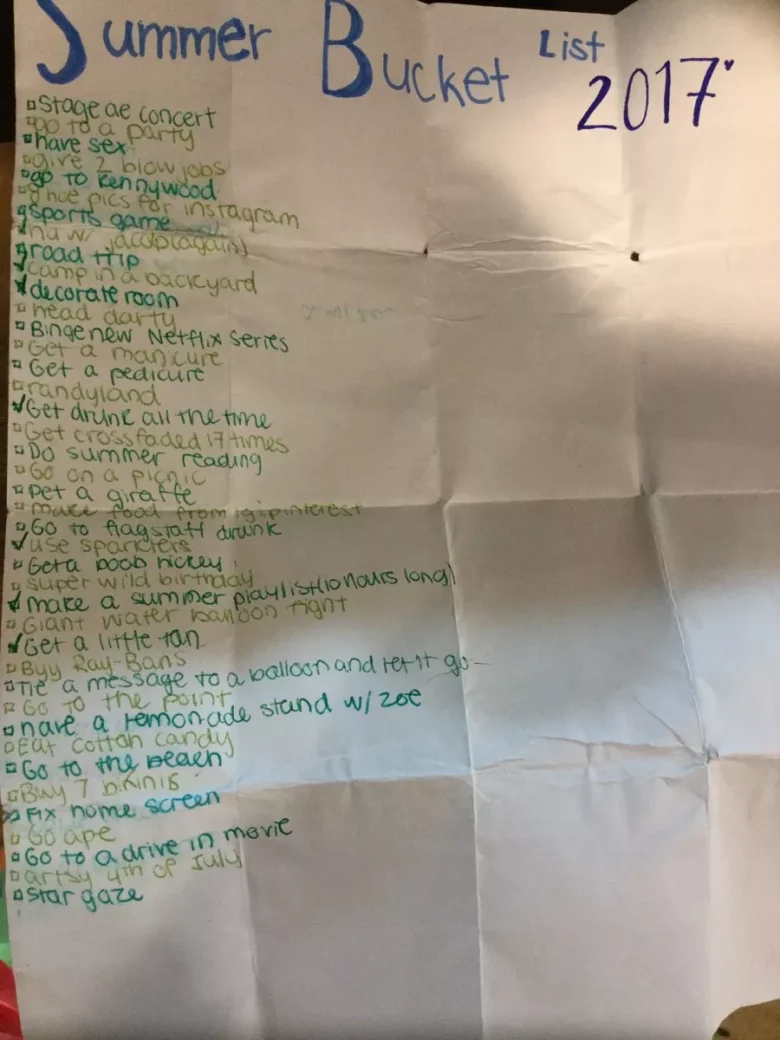 Summer Bucket List
2017
Stage ae concert
go to a party
have sex
give 2 blow jobs
go to Kennywood
pics for instagram
sports game
w/ jacob (again)
road trip
camp in a backyard
decorate room
head darty
Binge new Netflix series
Get a manicure
Get a pedicure
randyland
Get drunk all the time
Get crossfaded 17 times
Do summer reading
Go on a picnic
Pet a giraffe
make food from ig/pinterest
Go to flagstaff drunk
use sparklers
Get a boob hickey
super wild birthday
make a summer playlist (10 hours long)
Giant water balloon fight
Get a little tan
Buy Ray-Bans
Tie a message to a balloon and let it go
Go to the point
have a lemonade stand w/ zoe
Eat cotton candy
Go to the beach
Buy 7 bikinis
Fix home screen
Go ape
Go to a drive in movie
artsy 4th of July
Star gaze